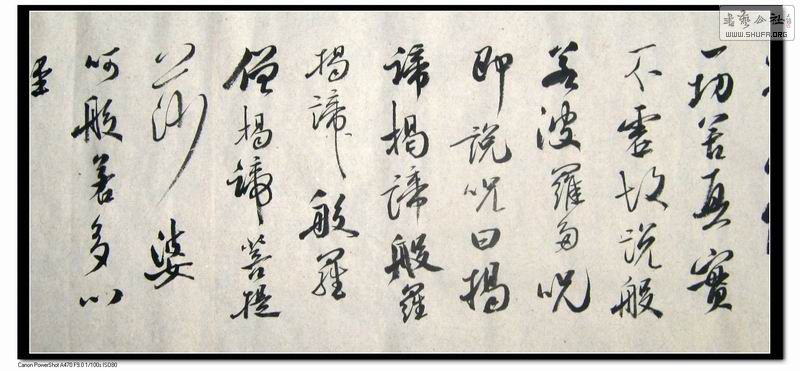 一切苦真實
不虛故說般
若波羅多呪
即說呪曰揭
諦揭諦般羅
揭諦般羅
僧揭諦菩提
莎婆
呵般若多心
書藝公社
WWW.SHUFA.ORG
Canon PowerShot A470 F9.0 1/100s ISO80